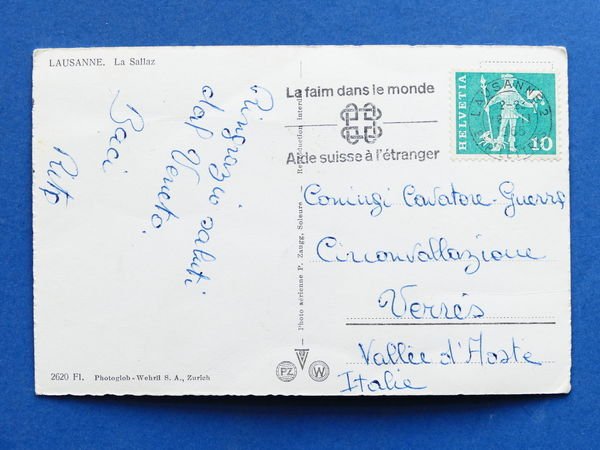 LAUSANNE. La Sallaz
Ringrazio saluti
dal Veneto
Baci
Rita
2620 Fl. Photoglob-Wehrli S. A., Zurich
Photo aérienne F. Zaugg, Soleure Reproduction interdite
La faim dans le monde
Aide suisse à l'étranger
LAUSANNE 2
HELVETIA
10
Coniugi Cavatore-Guerra
Circonvallazione
Verrès
Vallée d'Aoste
Italie
PZ
W